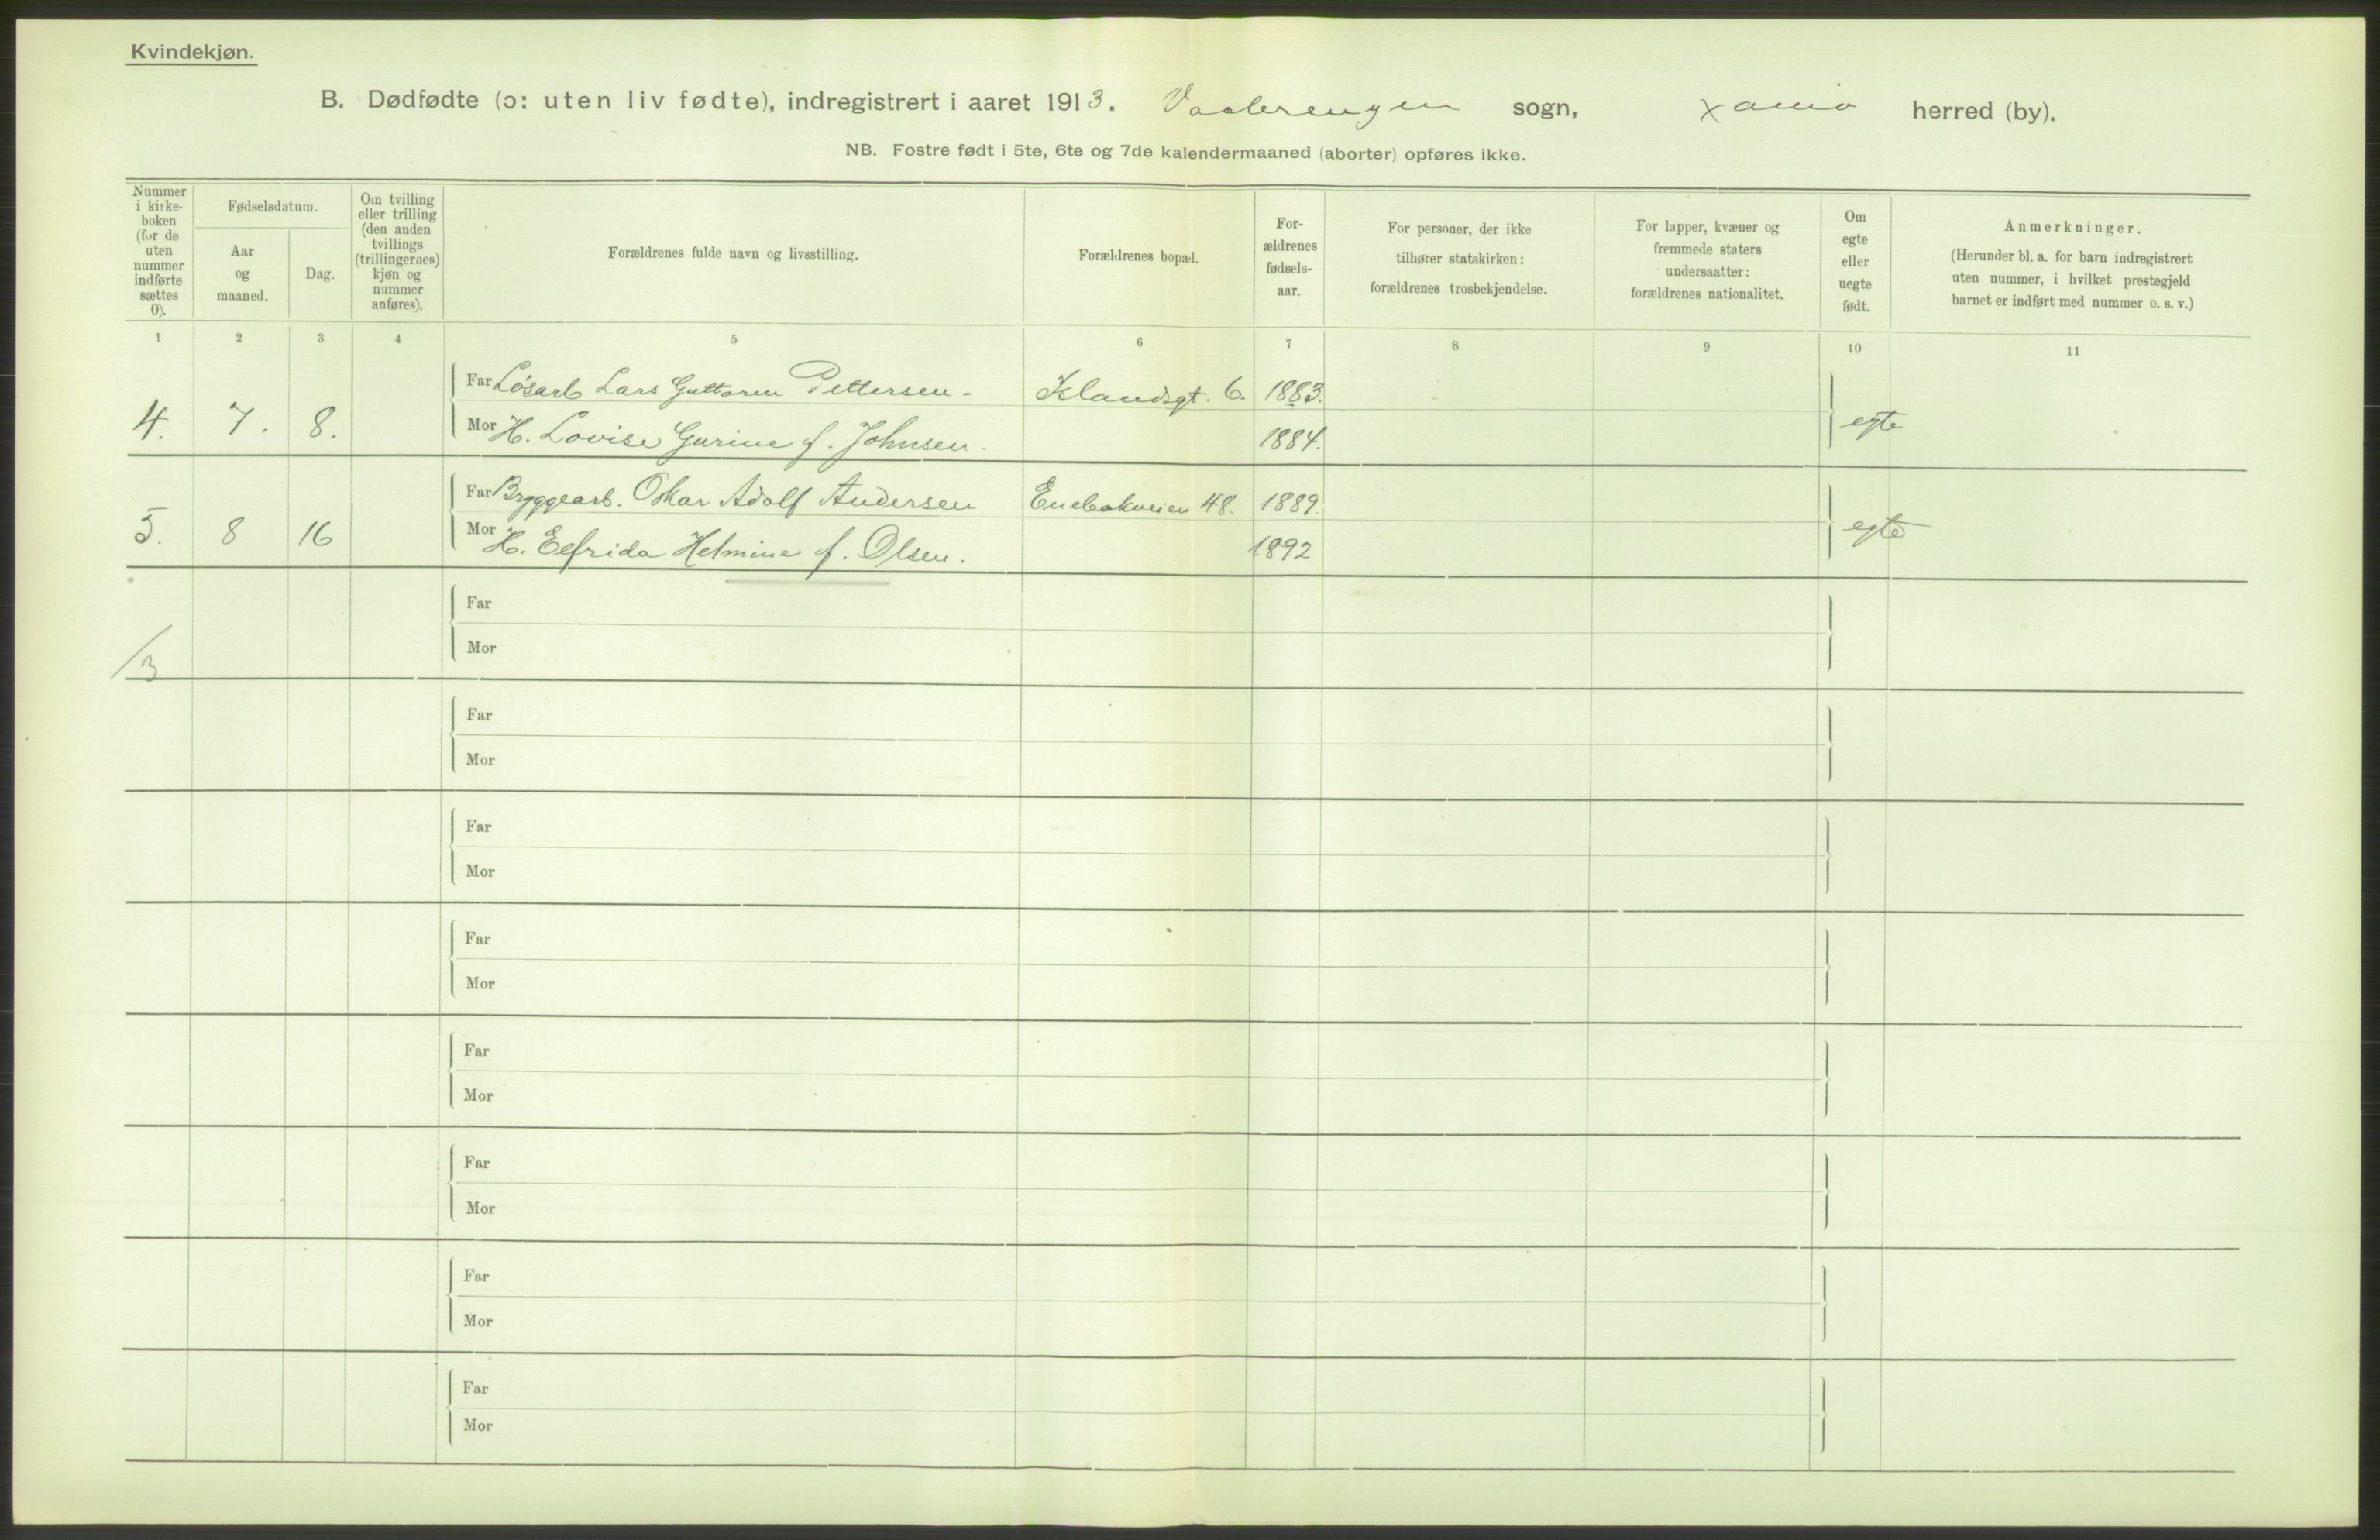 Kvindekjøn.
B. Dødfødte (ɔ: uten liv fødte), indregistrert i aaret 1913. Vaalerengen sogn, Xania herred (by).
NB. Fostre født i 5te, 6te og 7de kalendermaaned (aborter) opføres ikke.
Nummer
i kirke-
boken
(for de
uten
nummer
indførte
sættes
0).
Fødselsdatum.
Aar
og
maaned.
Dag.
Om tvilling
eller trilling
(den anden
tvillings
(trillingernes)
kjøn og
nummer
anføres).
Forældrenes fulde navn og livsstilling.
Forældrenes bopæl.
For-
ældrenes
fødsels-
aar.
For personer, der ikke
tilhører statskirken:
forældrenes trosbekjendelse.
For lapper, kvæner og
fremmede staters
undersaatter:
forældrenes nationalitet.
Om
egte
eller
uegte
født.
Anmerkninger.
(Herunder bl. a. for barn indregistrert
uten nummer, i hvilket prestegjeld
barnet er indført med nummer o. s. v.)
1 2 3 4 5 6 7 8 9 10 11
Far Løsarb Lars Guttorm Pettersen - Islandsgt. 6. 1883.
4. 7. 8. Mor H. Lovise Gurine f. Johnsen. 1884. egte
Far Bryggearb. Oskar Adolf Andersen Enebakveien 48. 1889.
5. 8 16 Mor H. Elfrida Helmine f. Olsen. 1892 egte
Far
/3 Mor
Far
Mor
Far
Mor
Far
Mor
Far
Mor
Far
Mor
Far
Mor
Far
Mor